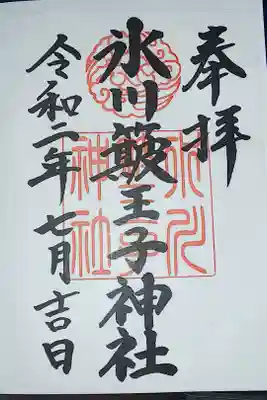 奉拝
氷川簸王子神社
令和二年七月吉日